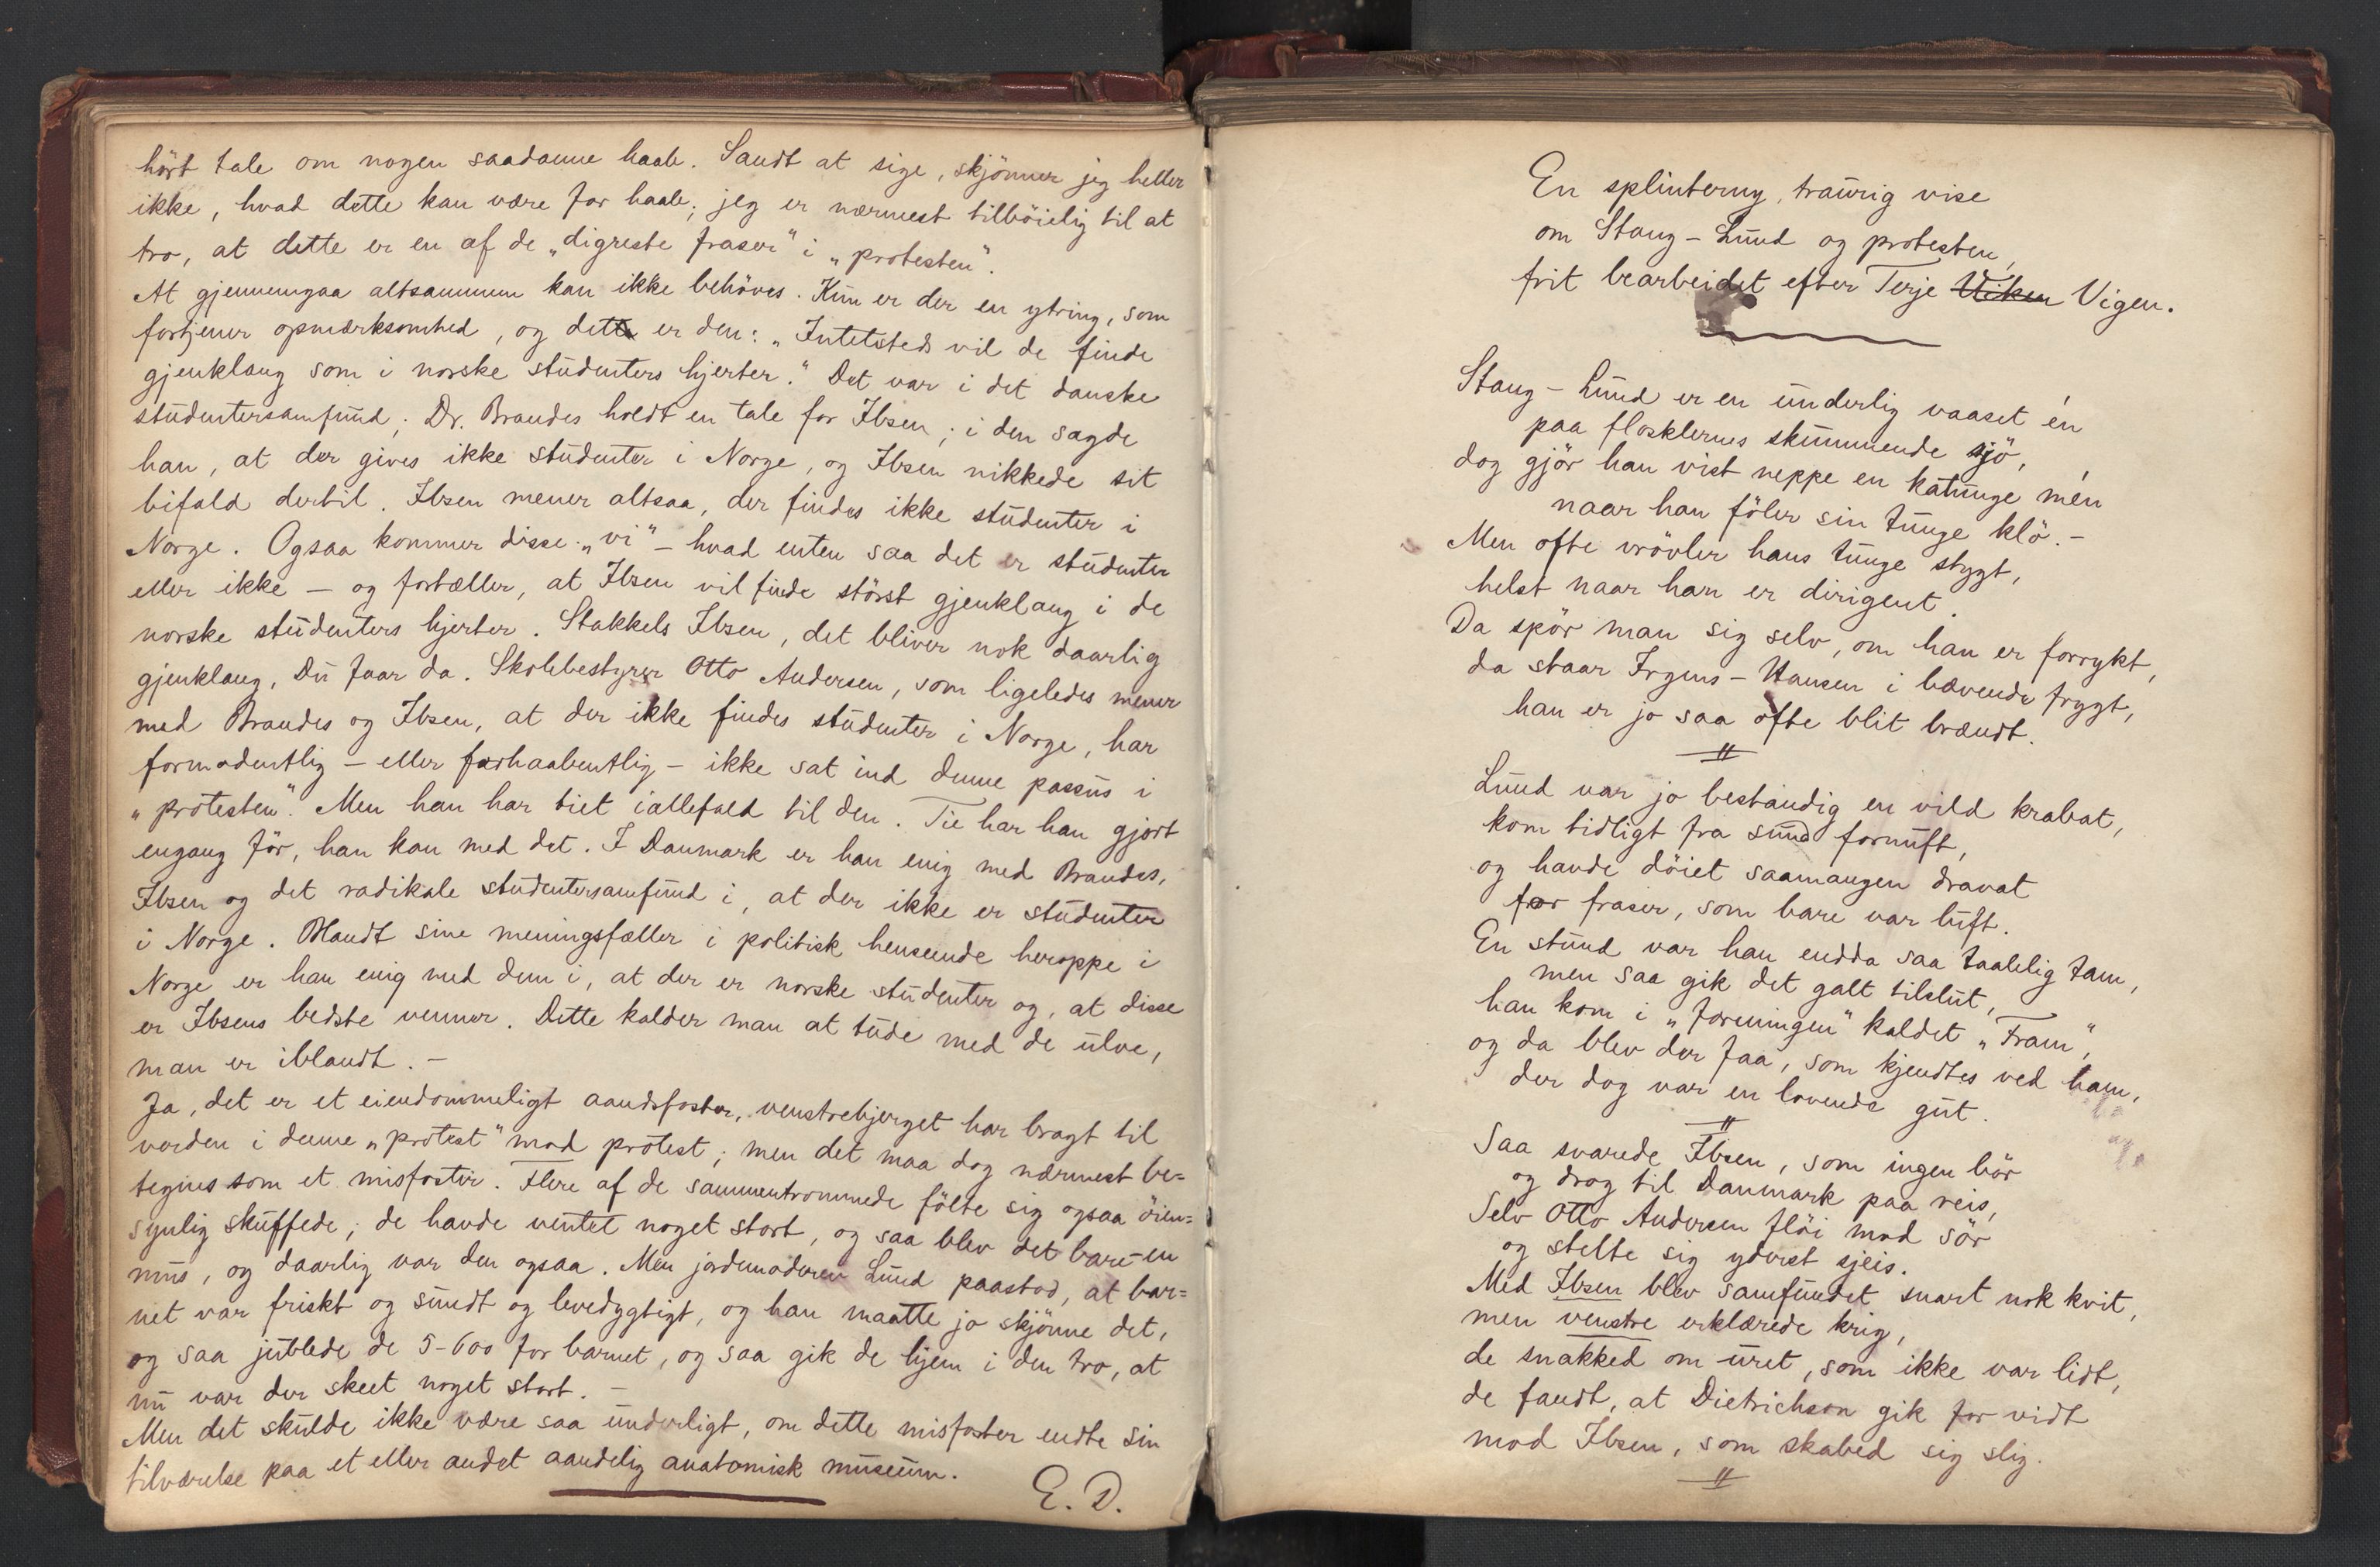 hört tale om nogen saadanne haab. Sandt at sige, skjönner jeg heller
ikke, hvad dette kan være for haab; jeg er nærmest tilböielig til at
tro, at dette er en af de „digreste fraser“ i „protesten“.
At gjennemgaa altsammen kan ikke behöves. Kun er der en ytring, som
fortjener opmærksomhed, og dette er den: „Intetsteds vil de finde
gjenklang som i norske studenters hjerter.“ Det var i det danske
studentersamfund; Dr. Brandes holdt en tale for Ibsen; i den sagde
han, at der gives ikke studenter i Norge, og Ibsen nikkede sit
bifald dertil. Ibsen mener altsaa, der findes ikke studenter i
Norge. Ogsaa kommer disse „vi“ – hvad enten saa det er studenter
eller ikke – og fortæller, at Ibsen vil finde störst gjenklang i de
norske studenters hjerter. Stakkels Ibsen, det bliver nok daarlig
gjenklang, Du faar da. Skolebestyrer Otto Andersen, som ligeledes mener
med Brandes og Ibsen, at der ikke findes studenter i Norge, har
formodentlig – eller forhaabentlig – ikke sat ind denne passus i
„protesten“. Men han har tiet iallefald til den. Tie har han gjort
engang för, han kan med det. I Danmark er han enig med Brandes,
Ibsen og det radikale studentersamfund i, at der ikke er studenter
i Norge. Blandt sine meningsfæller i politisk henseende heroppe i
Norge er han enig med dem i, at der er norske studenter og, at disse
er Ibsens bedste venner. Dette kalder man at tude med de ulve,
man er iblandt. –
Ja, det er et eiendommeligt aandsfoster, venstrebjerget har bragt til
verden i denne „protest“ mod protest; men det maa dog nærmest be=
tegnes som et misfoster. Flere af de sammentrommede fölte sig ogsaa öien=
synlig skuffede; de havde ventet noget stort, og saa blev det bare en
mus, og daarlig var den ogsaa. Men jordemoderen Lund paastod, at bar=
net var friskt og sundt og levedygtigt, og han maatte jo skjönne det,
og saa jublede de 5-600 for barnet, og saa gik de hjem i den tro, at
nu var der skeet noget stort. –
Men det skulde ikke være saa underligt, om dette misfoster endte sin
tilværelse paa et eller andet aandelig anatomisk museum.
E. D.
En splinterny, traurig vise
om Stang – Lund og protesten,
frit bearbeidet efter Terje Viken Vigen.
Stang – Lund er en underlig vaaset én
paa flosklernes skummende sjö,
dog gjör han vist neppe en katunge mén
naar han föler sin tunge klö. –
Men ofte vrövler hans tunge stygt,
helst naar han er dirigent.
Da spör man sig selv, om han er forrykt,
da staar Irgens – Hansen i bævende frygt,
han er jo saa ofte blit brændt.
Lund var jo bestandig en vild krabat,
kom tidligt fra sund fornuft,
og havde döiet saamangen dravat
for fraser, som bare var luft.
En stund var han endda saa taalelig tam,
men saa gik det galt tilslut,
han kom i „foreningen“ kaldet „Fram“,
og da blev der faa, som kjendtes ved ham,
der dog var en lovende gut.
Saa svarede Ibsen, som ingen bör
og drog til Danmark paa reis,
Selv Otto Andersen flöi mod sör
og stelte sig yderst sjeis.
Med Ibsen blev samfundet snart nok kvit,
men venstre erklærede krig,
de snakked om uret, som ikke var lidt,
de fandt, at Dietrichson gik for vidt
mod Ibsen, som skabed sig slig.